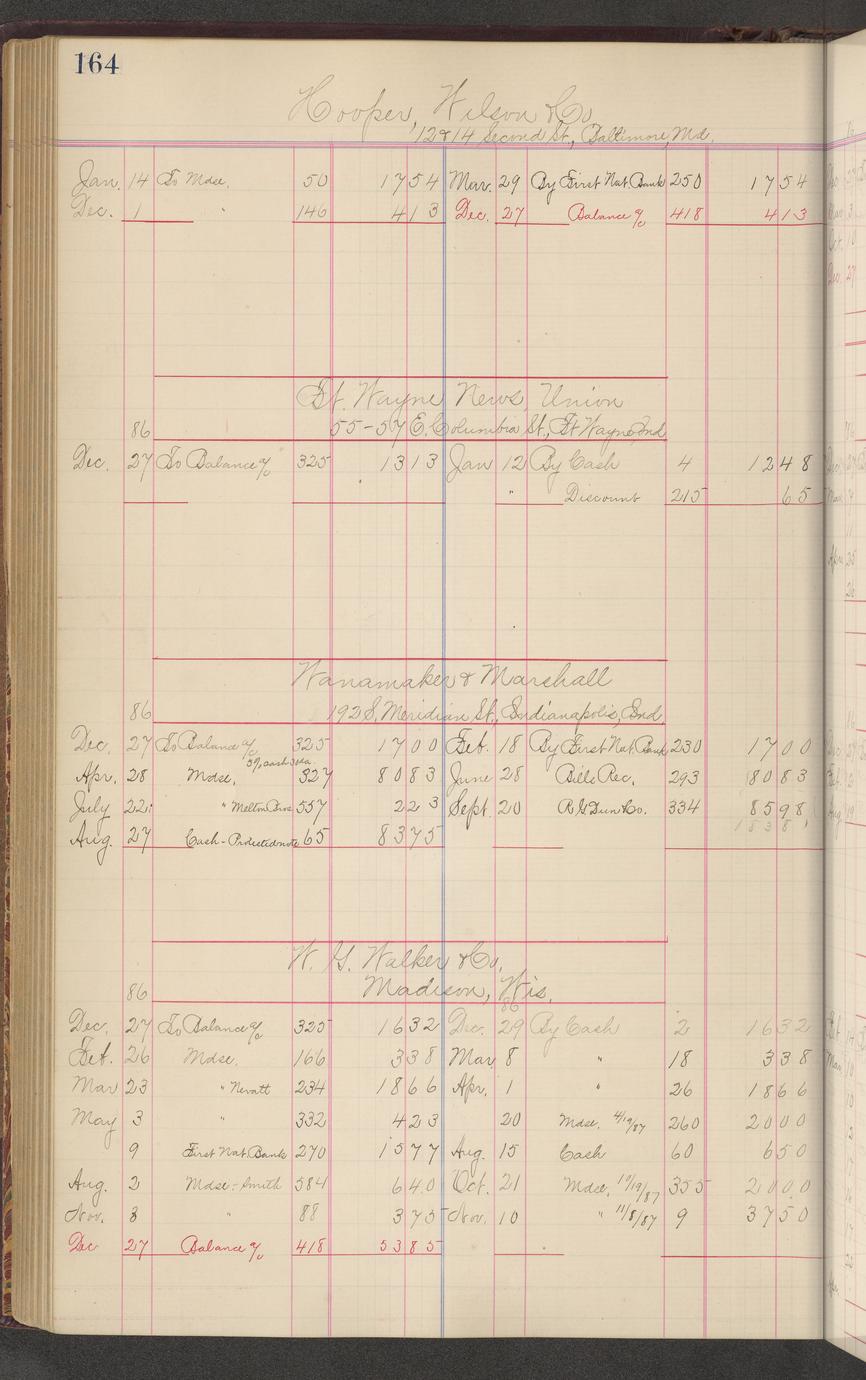 164
Hooper, Wilson & Co
12 & 14 Second St., Baltimore, Md.
Jan. 14 To Mdse. 50 1754 Mar. 29 By First Nat. Bank 250 1754
Dec. 1 " 146 413 Dec. 27 Balance a/c 418 413
Ft. Wayne News Union
86 55-57 E. Columbia St., Ft Wayne, Ind
Dec. 27 To Balance a/c 325 1313 Jan 12 By Cash 4 1248
" Discount 215 65
Wanamaker & Marshall
86 192 S. Meridian St., Indianapolis, Ind
Dec. 27 To Balance a/c 325 1700 Feb. 18 By First Nat. Bank 230 1700
5% cash 30da
Apr. 28 Mdse. 327 8083 June 28 Bills Rec. 293 8083
July 22 " Melton Bros 557 223 Sept 20 R G Dun & Co. 334 8598
Aug. 27 Cash - Protested note 65 8375
W. G. Walker & Co.
86 Madison, Wis.
86
Dec. 27 To Balance a/c 325 1632 Dec. 29 By Cash 2 1632
Feb. 26 Mdse. 166 338 Mar 8 " 18 338
Mar 23 " Nevatt 234 1866 Apr. 1 " 26 1866
May 3 " 332 423 20 Mdse. 4/19/87 260 2000
9 First Nat. Bank 270 1577 Aug. 15 Cash 60 650
Aug. 2 Mdse - Smith 584 640 Oct. 21 Mdse, 10/19/87 355 2000
Nov. 8 " 88 375 Nov. 10 " 11/8/87 9 3750
Dec 27 Balance a/c 418 5385